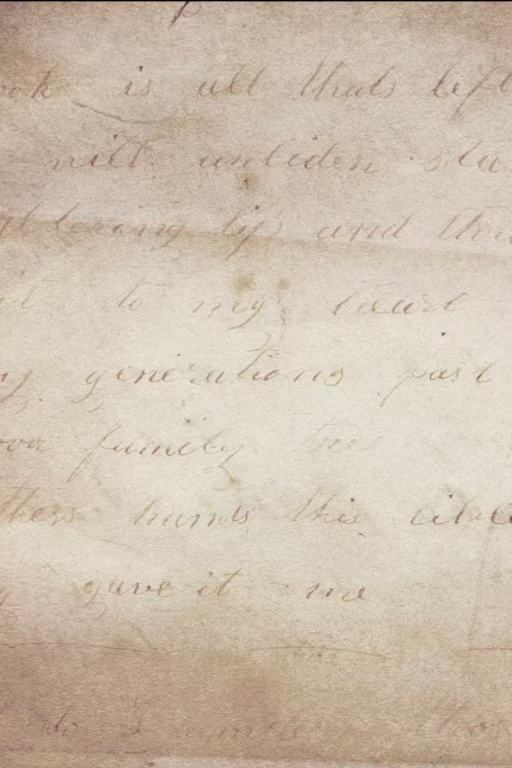 ook is all thats left
will unbiden sta
ltering lip and thr
it to my heart
ny generations past
our family tree
thers hands this bible
gave it me
do I